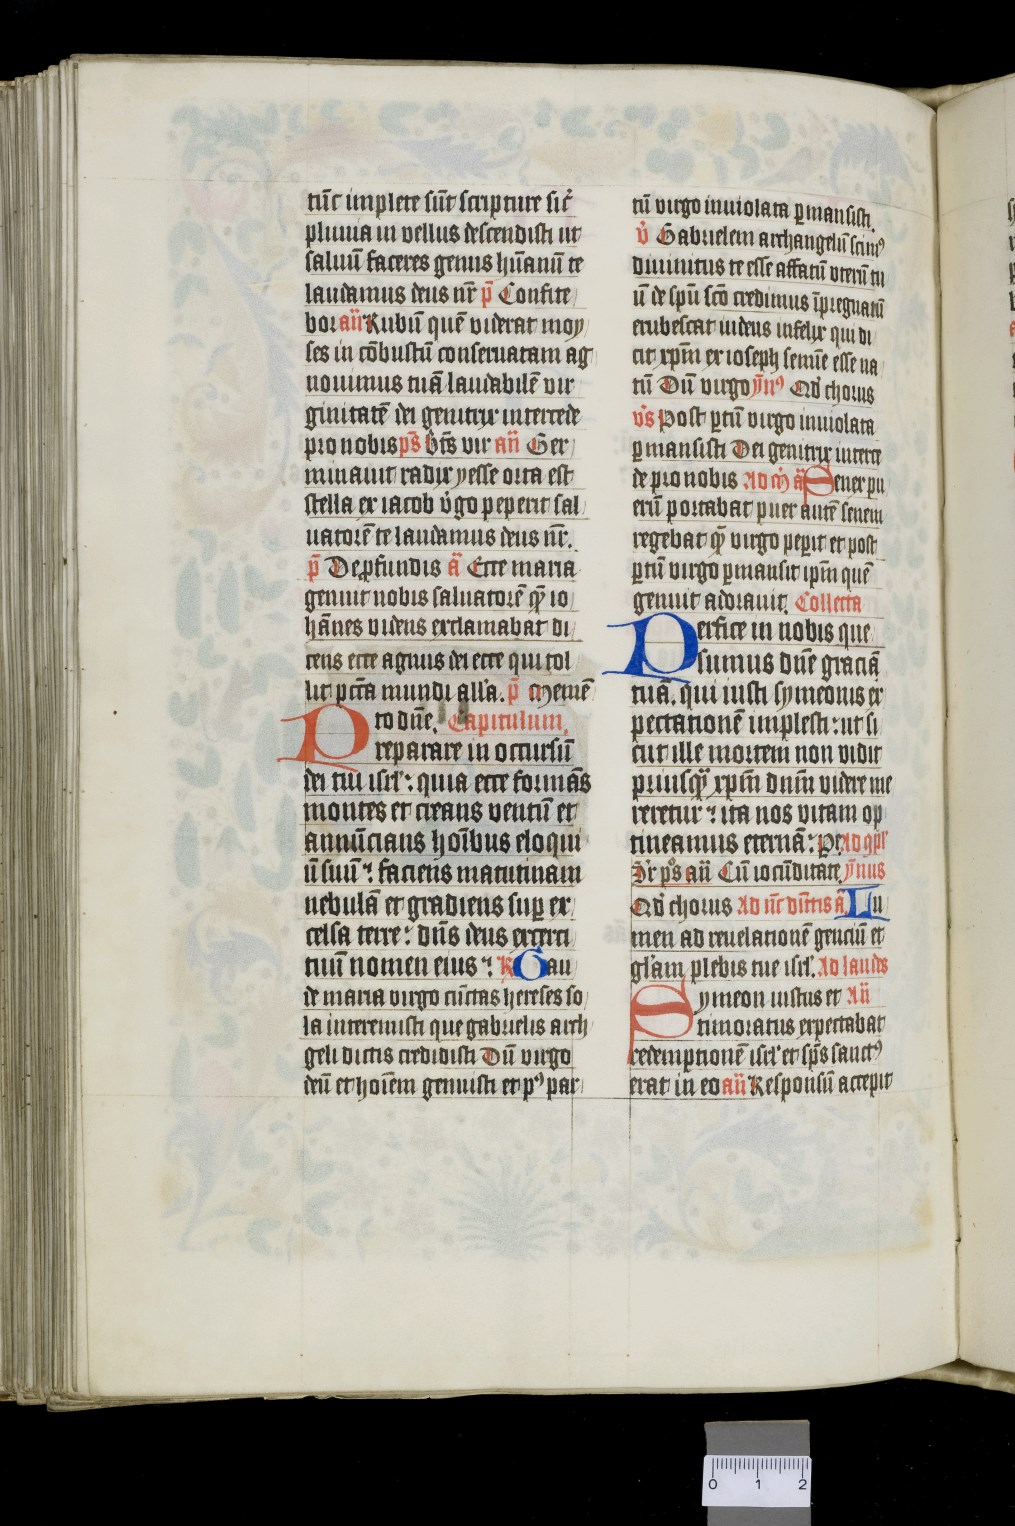 tūc implete sūt scripture sic̄
pluuia in vellus descendisti ut
saluū faceres genus hūanū te
laudamus deus nr̄ p̄ Confite
bor añ Rubū quē viderat moy
ses in cōbustū conseruatam ag
nouimus tuā laudabilē vir
ginitatē dei genitrix intercede
pro nobis ps̄ Bt̄s vir añ Ger
minauit radix yesse orta est
stella ex iacob v̓go peperit sal
uatorē te laudamus deus nr̄.
p̄ De ꝓfundis ā Ecce maria
genuit nobis saluatorē q̄ȝ io
hānes videns exclamabat di
cens ecce agnus dei ecce qui tol
lit pct̄a mundi all'a. p̄ Memē
to dn̄e. Capitulum.
Preparare in occursū
dei tui isrl'. quia ecce formās
montes et creans ventū et
annūcians hoībus eloqui
ū suū. faciens matutinam
nebulā et gradiens suꝑ ex
celsa terre. dn̄s deus exerci
tuū nomen eius. R Gau
de maria virgo cūctas hereses so
la interemisti que gabrielis arch
geli dictis credidisti Dū virgo
deū et hoīem genuisti et pꝰ par
tū virgo inuiolata ꝑmansisti.
v̓ Gabrielem archangelū scimꝰ
diuinitus te esse affatū vterū tu
ū de spū scō credimus īpregnatū
erubescat iudeus infelix qui di
cit xp̄m ex ioseph semīe esse na
tū Dū virgo ȳnꝰ Qd̓ chorus
v̓s Post ꝑtū virgo inuiolata
ꝑmansisti Dei genitrix interce
de pro nobis Ad m̄ ā Senex pu
erū portabat puer autē senem
regebat q̄ȝ virgo peꝑit et post
ꝑtū virgo ꝑmansit ip̄m quē
genuit adorauit. Collecta
Perfice in nobis que
sumus dn̄e graciā
tuā. qui iusti symeonis ex
pectationē implesti. ut si
cut ille mortem non vidit
priusq̄ȝ xp̄m dnm̄ videre me
reretur. ita nos vitam op
tineamus eternā. P. Ad ꝯpl'
p̓s añ Cū iocūditate ȳnus
Qd̓ chorus Ad nc̄ dittis ā Lu
men ad reuelationē genciū et
gl'am plebis tue isrl'. Ad laudes
Symeon iustus et añ
timoratus expectabat
redemptionē isrl' et sp̄s sanctꝰ
erat in eo añ Responsū accepit